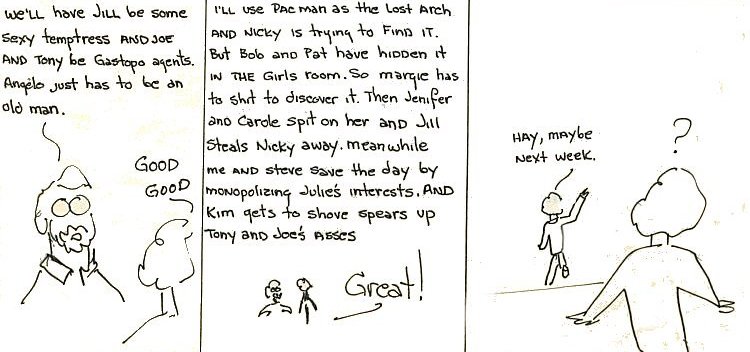 We'll have Jill be some
sexy temptress and Joe
and Tony be Gastopo agents.
Angelo just has to be an
old man.
GOOD
GOOD
I'll use Pac man as the Lost Arch
and Nicky is trying to find it.
But Bob and Pat have hidden it
in the Girls room. So margie has
to shit to discover it. Then Jenifer
and Carole spit on her and Jill
steals Nicky away. meanwhile
me and steve save the day by
monopolizing Julie's interests. And
Kim gets to shove spears up
Tony and Joe's asses
Great!
Hay, maybe
next week.
?